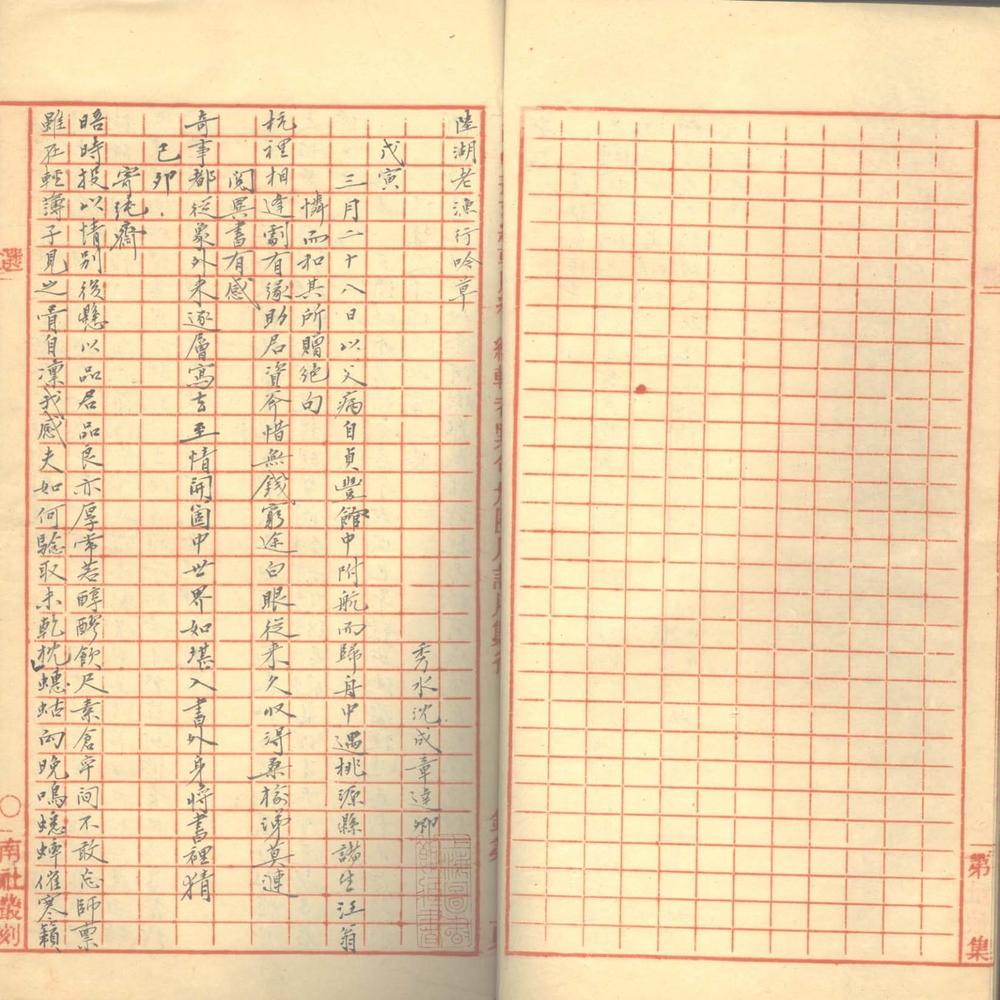 陸湖老漁行吟草
秀水沈成章達卿
戊寅
三月二十八日以父病自貞豐館中附航而歸舟中遇桃源縣諸生汪翁
憐而和其所贈絕句
杭裡相逢劇有緣助君資斧惜無錢窮途白眼從來久収得桑榆涕莫漣
閱異書有感
奇事都從象外來逐層寫去至情開個中世界如堪入書外身將書裡猜
己卯
寄純齋
晤時投以情別後懸以品君品良亦厚常若醇醪飲尺素倉卒間不敢忘師稟
雖在輕薄子見之骨自凜我感夫如何騐取未乾枕蟪蛄向晚鳴蟋蟀催寒籟
選
南社叢刻
第 集